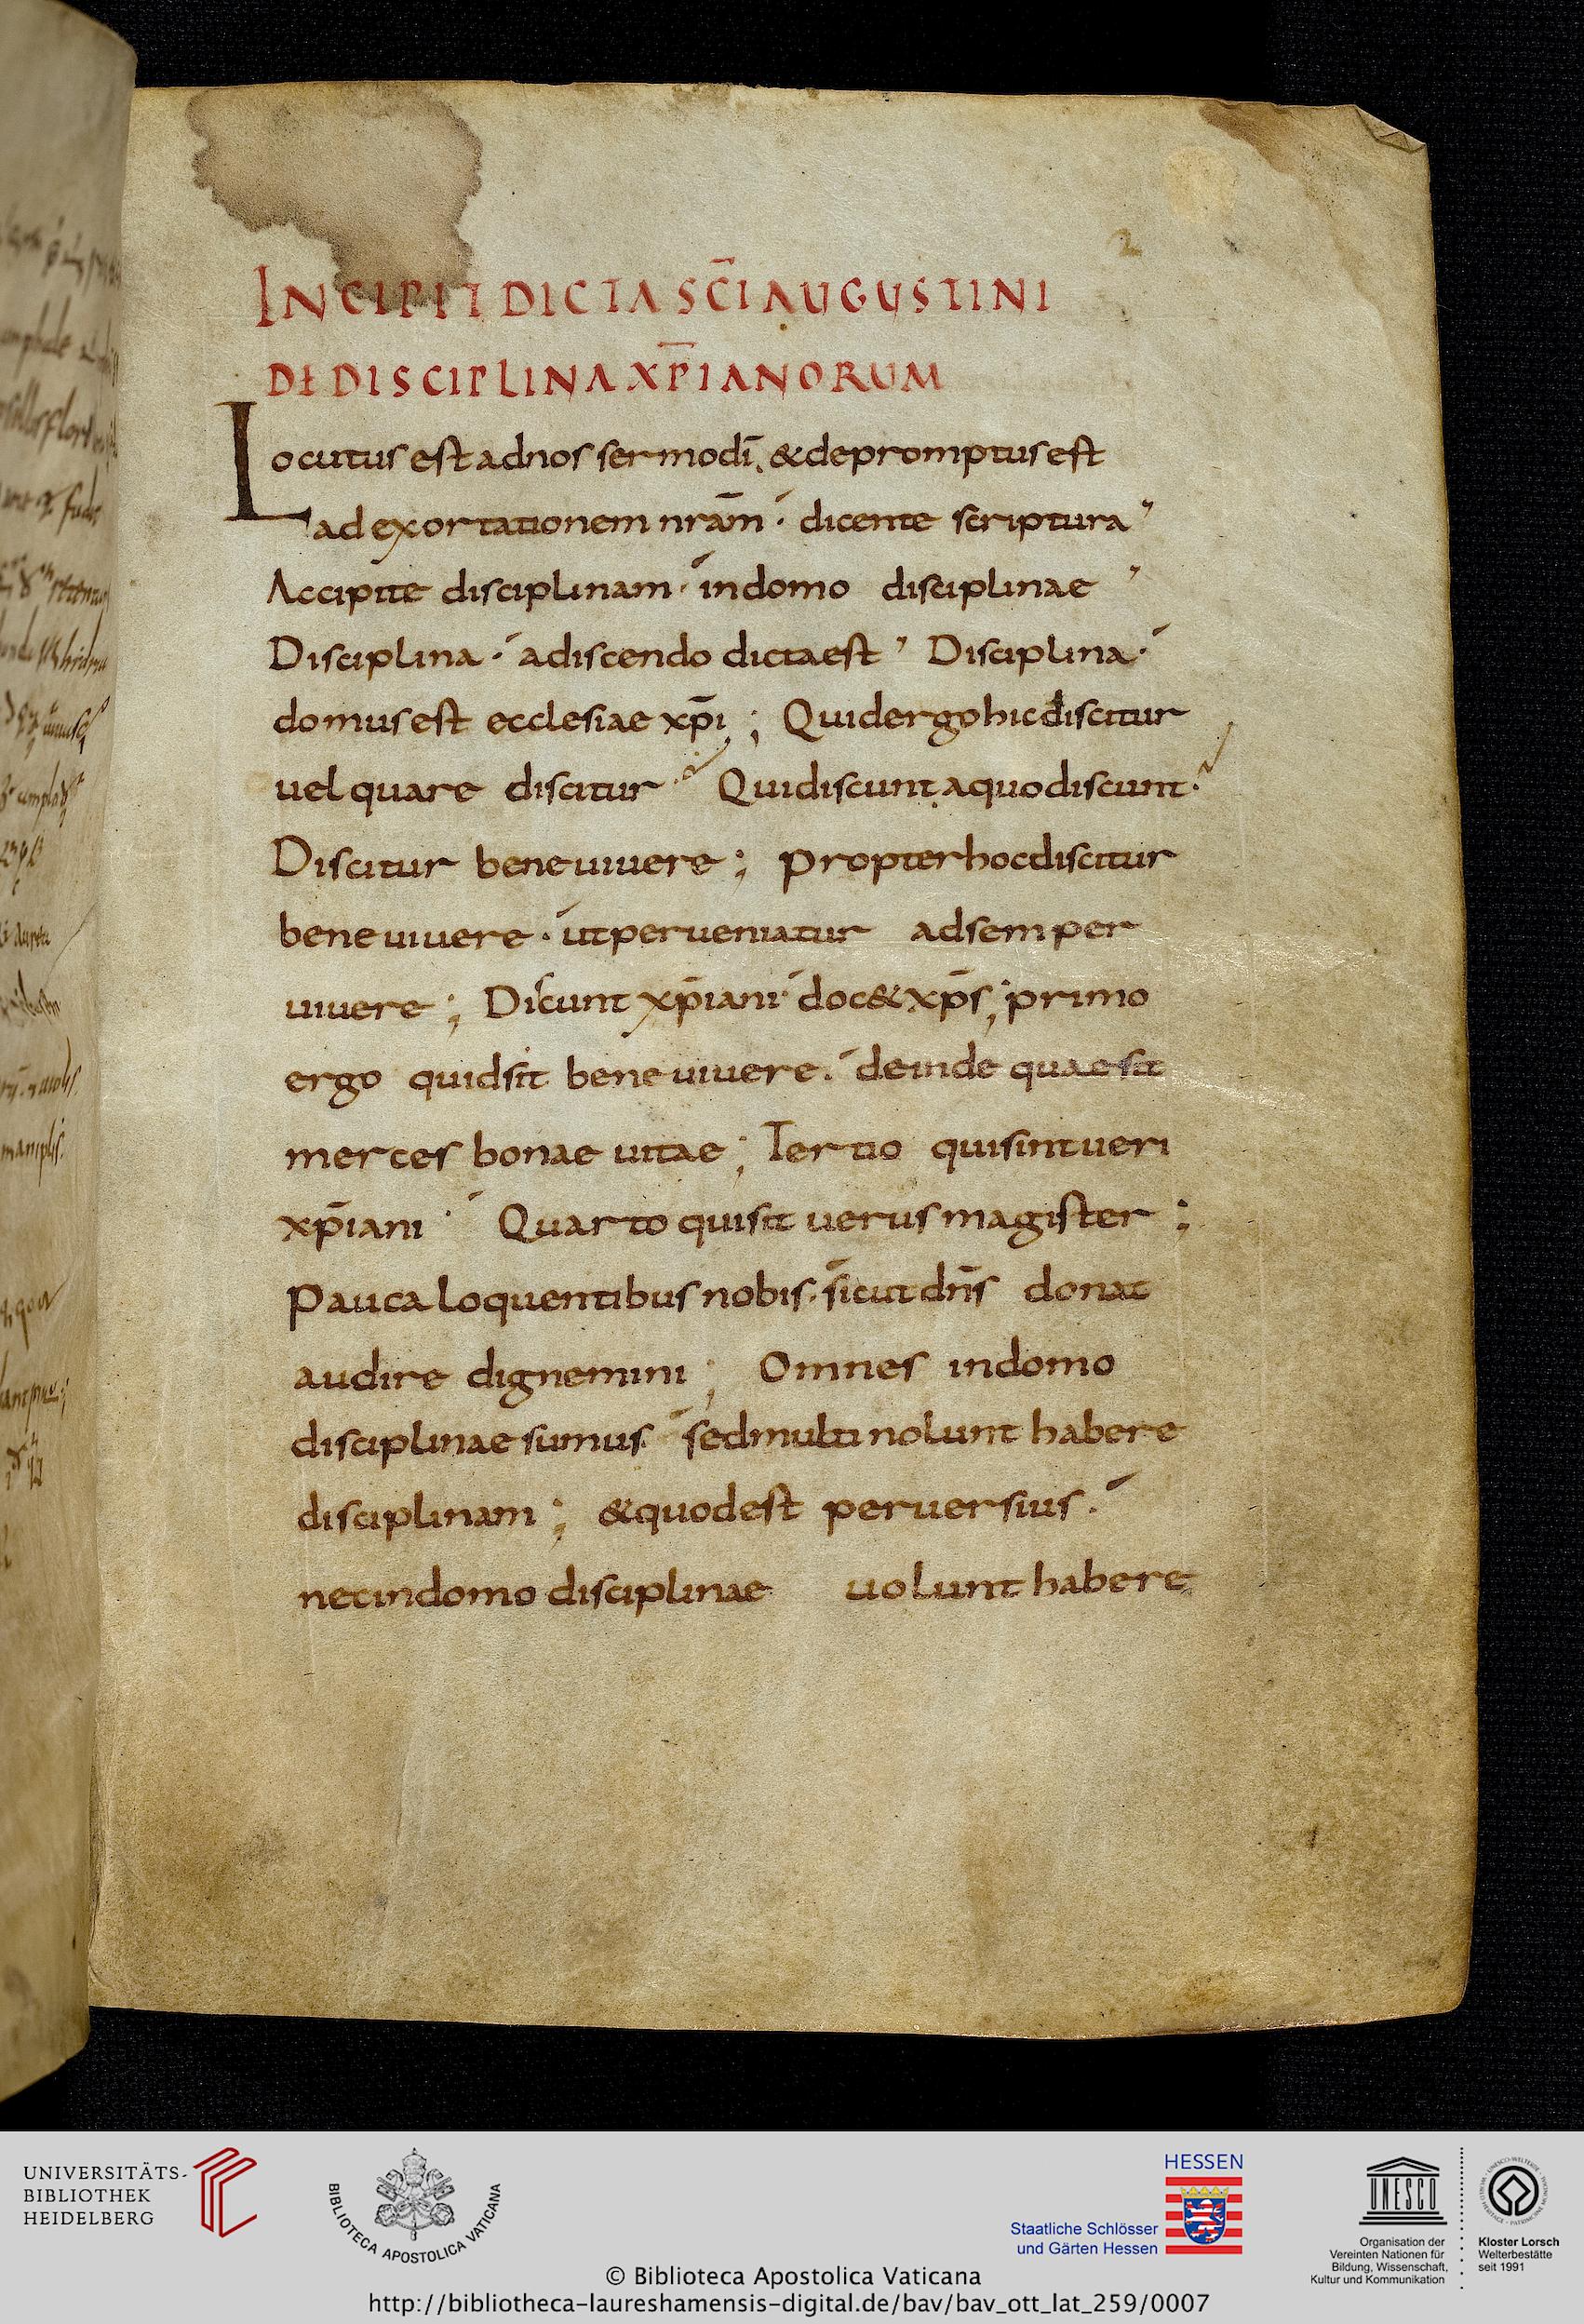 2
INCIPIT DICTA SCI AUGUSTINI
DE DISCIPLINA XPIANORUM
Locutus est ad nos sermo di, & depromptus est
ad exortationem nram · dicente scriptura
Accipite disciplinam · in domo disciplinae
Disciplina · a discendo dicta est Disciplina ·
domus est ecclesiae xpi ; Quid ergo hic discitur
uel quare discitur Qui discunt a quo discunt
Discitur bene uiuere ; propter hoc discitur
bene uiuere · ut perueniatur ad semper
uiuere ; Dicunt xpiani doc& xps ; primo
ergo quid sit bene uiuere. deinde quae sit
merces bonae uitae ; Tertio qui sint ueri
xpiani · Quarto qui sit uerus magister ;
Pauca loquentibus nobis · sicut dns donat
audire dignemini ; Omnes in domo
disciplinae sumus sed multi nolunt habere
disciplinam ; & quod est peruersius .
nec in domo disciplinae uolunt habere
UNIVERSITÄTS-
BIBLIOTHEK
HEIDELBERG
BIBLIOTECA APOSTOLICA VATICANA
HESSEN
Staatliche Schlösser
und Gärten Hessen
UNESCO
Organisation der
Vereinten Nationen für
Bildung, Wissenschaft,
Kultur und Kommunikation
Kloster Lorsch
Welterbestätte
seit 1991
© Biblioteca Apostolica Vaticana
http://bibliotheca-laureshamensis-digital.de/bav/bav_ott_lat_259/0007